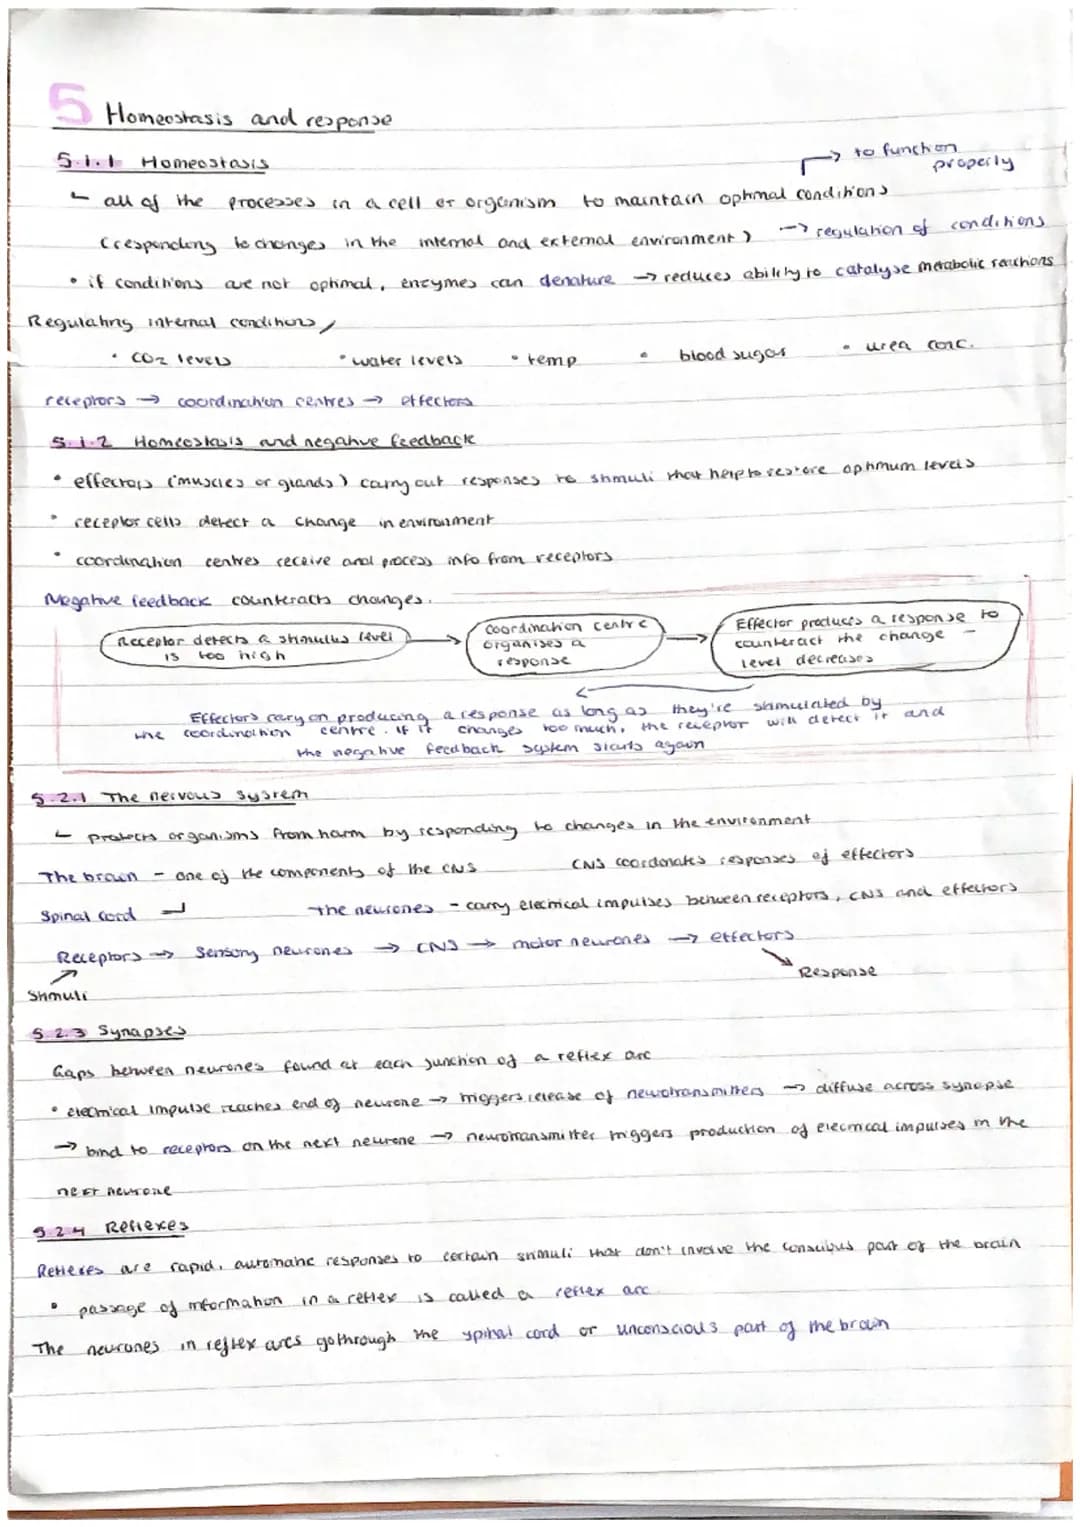 5 Homeostasis and response
5.1.1 Homeostasis
→ to function
properly
all of the processes in a cell or organism to maintain optimal conditions
(responding to changes in the internal and external environment) → regulation of conditions
• if conditions are not optimal, enzymes can denature → reduces ability to catalyse metabolic reactions
Regulating internal conditions
• CO2 levels • water levels • temp • blood sugar • urea conc.
receptors → coordination centres → effectors
5.1.2 Homeostasis and negative feedback
• effectors (muscles or glands) carry out responses to stimuli that help to restore optimum levels
• receptor cells detect a change in environment
• coordination centres receive and process info from receptors
Negative feedback counteracts changes.
Receptor detects a stimulus level
is too high
→
coordination centre
organises a
response
→
Effector produces a response to
counteract the change -
level decreases
Effectors cary on producing a response as long as they're stimulated by
the coordination centre. If it changes too much, the receptor will detect it and
the negative feedback system starts again
5.2.1 The nervous system
protects organisms from harm by responding to changes in the environment
The brain - one of the components of the CNS CNS coordonates responses of effectors
Spinal cord The neurones - carry electrical impulses between receptors, CNS and effectors
Receptors → Sensory neurones → CNS → motor neurones → effectors
Response
Stimuli
5.2.3 Synapses
Gaps between neurones found at each junction of a reflex arc
• electrical impulse reaches end of neurone → triggers release of neurotransmitters → diffuse across synapse
→ bind to receptors on the next neurone → neurotransmitter triggers production of electrical impulses in the
next neurone
5.2.4 Reflexes
Reflexes are rapid, automatic responses to certain stimuli that don't involve the conscious part of the brain
• passage of information in a reflex is called a reflex arc
The neurones in reflex arcs go through the spinal cord or unconscious part of the brain